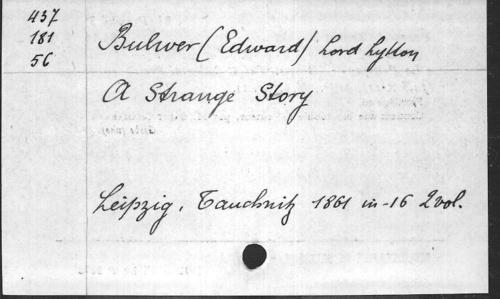 437
181
56
Bulwer (Edward) Lord Lytton
A Strange Story
Leipzig, Tauchnitz 1861 in-16 2 vol.